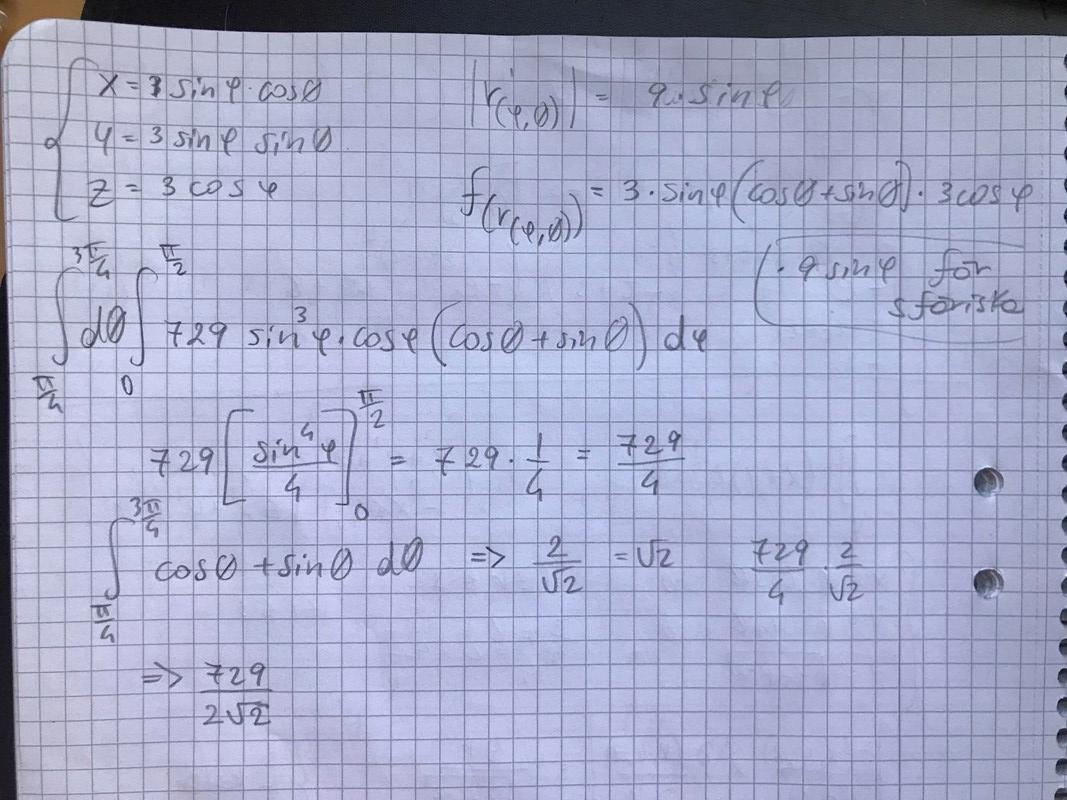 x = 3 sin φ · cos θ
y = 3 sin φ sin θ
z = 3 cos φ
|r'(φ,θ)| = 9 · sin φ
f(r(φ,θ)) = 3 · sin φ (cos θ + sin θ) · 3 cos φ
· 9 sin φ för
sfäriska
∫_{π/4}^{3π/4} dθ ∫_{0}^{π/2} 729 sin³φ · cos φ (cos θ + sin θ) dφ
729 [sin⁴φ / 4]_{0}^{π/2} = 729 · 1/4 = 729/4
∫_{π/4}^{3π/4} cos θ + sin θ dθ => 2/√2 = √2 729/4 · 2/√2
=> 729/(2√2)